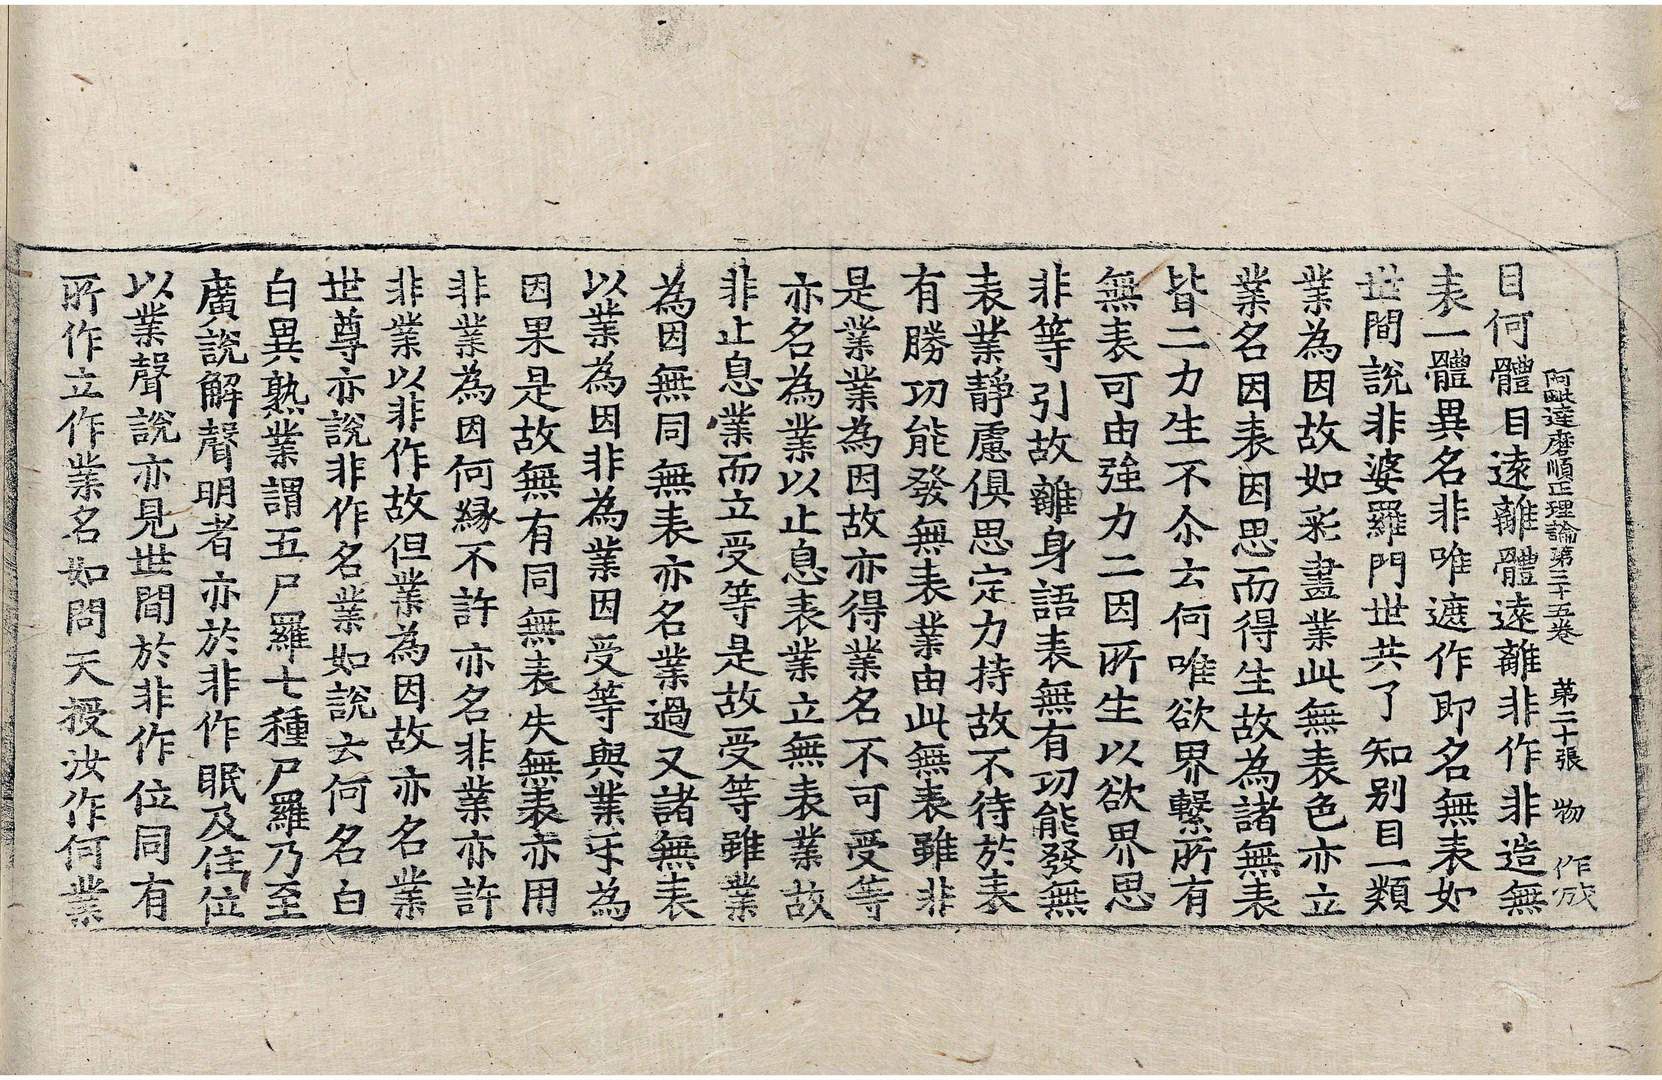 阿毗達磨順正理論第三十五卷　第二十張　物　作冘
目何體目遠離體遠離非作非造無
表一體異名非唯遮作即名無表如
世間說非婆羅門世共了知別目一類
業為因故如彩畫業此無表色亦立
業名因表因思而得生故為諸無表
皆二力生不尒云何唯欲界繫所有
無表可由強力二因所生以欲界思
非等引故離身語表無有功能發無
表業靜慮俱思定力持故不待於表
有勝功能發無表業由此無表雖非
是業業為因故亦得業名不可受等
亦名為業以止息表業立無表業故
非止息業而立受等是故受等雖業
為因無同無表亦名業過又諸無表
以業為因非為業因受等與業乐為
因果是故無有同無表失無表亦用
非業為因何緣不許亦名非業亦許
非業以非作故但業為因故亦名業
世尊亦說非作名業如說云何名白
白異熟業謂五尸羅七種尸羅乃至
廣說解聲明者亦於非作眠及住位
以業聲說亦見世間於非作位同有
所作立作業名如問天授汝作何業